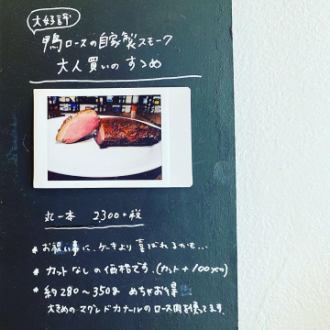 大好評
鴨ロースの自家製スモーク
大人買いのすすめ
丸一本 2,300+税
* お祝い事に、ケーキより喜ばれるかも...
* カットなしの価格です。(カット+100×り)
* 約280~350g めちゃお得!!
大きめのマグレドカナールのロース肉を使ってます。